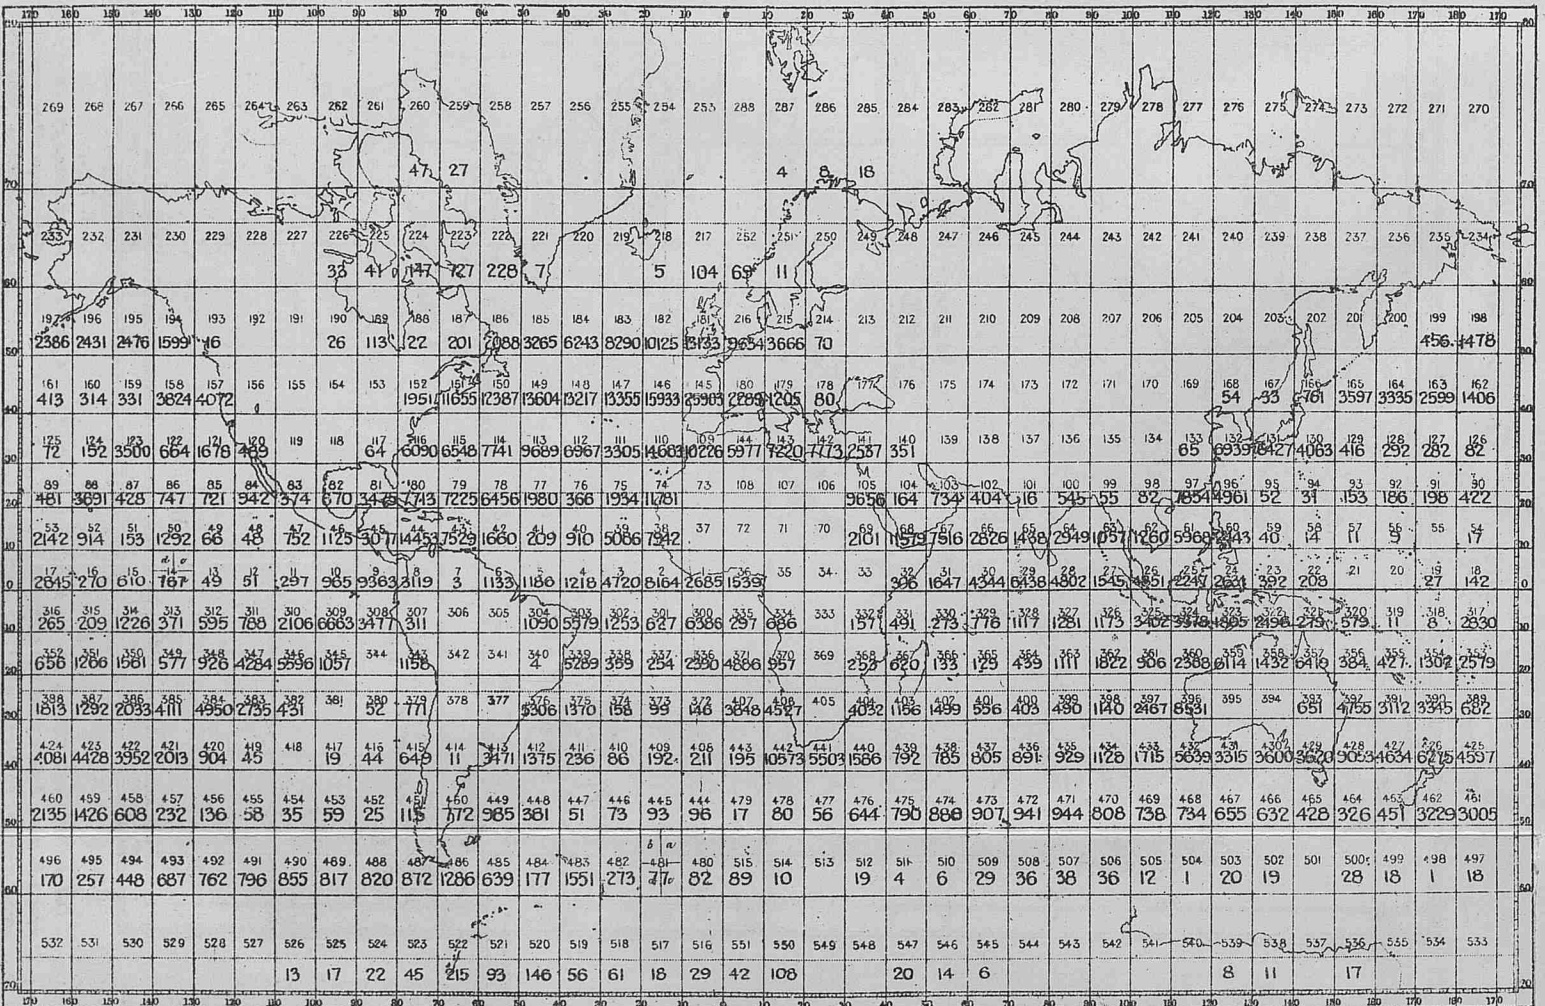 170 160 150 140 130 120 110 100 90 80 70 60 50 40 30 20 10 0 10 20 30 40 50 60 70 80 90 100 110 120 130 140 150 160 170 180 170
80 80
269 268 267 266 265 264 263 262 261 260 259 258 257 256 255 254 253 288 287 286 285 284 283 282 281 280 279 278 277 276 275 274 273 272 271 270
47 27 4 8 18
70 70
233 232 231 230 229 228 227 226 225 224 223 222 221 220 219 218 217 252 251 250 249 248 247 246 245 244 243 242 241 240 239 238 237 236 235 234
33 41 147 727 228 7 5 104 69 11
60 60
197 196 195 194 193 192 191 190 189 188 187 186 185 184 183 182 181 216 215 214 213 212 211 210 209 208 207 206 205 204 203 202 201 200 199 198
2386 2431 2476 1599 16 26 113 22 201 2088 3265 6243 8290 10125 13133 9654 3666 70 456 1478
50 50
161 160 159 158 157 156 155 154 153 152 151 150 149 148 147 146 145 180 179 178 177 176 175 174 173 172 171 170 169 168 167 166 165 164 163 162
413 314 331 3824 4072 1951 11655 12387 13604 13217 13355 15933 25903 2289 1205 80 54 93 761 3597 3335 2599 1406
40 40
125 124 123 122 121 120 119 118 117 116 115 114 113 112 111 110 109 144 143 142 141 140 139 138 137 136 135 134 133 132 131 130 129 128 127 126
72 152 3500 664 1678 489 64 6090 6548 7741 9689 6967 3305 14683 10226 5977 7220 7773 2537 351 65 6939 18427 4063 416 292 282 82
30 30
89 88 87 86 85 84 83 82 81 80 79 78 77 76 75 74 73 108 107 106 105 104 103 102 101 100 99 98 97 96 95 94 93 92 91 90
481 3691 428 747 721 942 374 670 3475 7743 7225 6456 1980 366 1934 11781 9656 164 734 404 16 545 55 82 7854 4961 52 31 153 186 198 422
20 20
53 52 51 50 49 48 47 46 45 44 43 42 41 40 39 38 37 72 71 70 69 68 67 66 65 64 63 62 61 60 59 58 57 56 55 54
2142 914 153 1292 66 48 752 1125 3077 14453 7529 1660 209 910 5086 7942 2181 11579 7516 2826 1438 2949 1057 1260 5968 2143 40 14 11 9 17
10 10
17 16 15 14 13 12 11 10 9 8 7 6 5 4 3 2 1 36 35 34 33 32 31 30 29 28 27 26 25 24 23 22 21 20 19 18
2645 270 610 767 49 51 297 965 9363 3119 3 1133 1186 1218 4720 8164 2685 1539 306 1647 4344 6438 4802 1545 4851 2247 2631 392 208 27 142
0 0
316 315 314 313 312 311 310 309 308 307 306 305 304 303 302 301 300 335 334 333 332 331 330 329 328 327 326 325 324 323 322 321 320 319 318 317
265 209 1226 371 595 788 2106 6663 3477 311 1090 5579 1253 627 6386 297 686 1571 491 273 776 1117 1281 1173 3402 3378 1805 2496 279 579 11 8 2830
10 10
352 351 350 349 348 347 346 345 344 343 342 341 340 339 338 337 336 371 370 369 368 367 366 365 364 363 362 361 360 359 358 357 356 355 354 353
656 1266 1561 577 926 4284 5596 1057 1158 4 5289 359 254 2390 4886 957 253 620 133 129 439 1111 1822 906 2388 6114 1432 6419 384 427 1302 2579
20 20
388 387 386 385 384 383 382 381 380 379 378 377 376 375 374 373 372 407 406 405 404 403 402 401 400 399 398 397 396 395 394 393 392 391 390 389
1813 1292 2033 4111 4950 2735 431 52 771 5306 1370 158 99 146 3848 4527 4032 1156 499 556 403 490 1140 2467 8531 651 4755 3112 3345 682
30 30
424 423 422 421 420 419 418 417 416 415 414 413 412 411 410 409 408 443 442 441 440 439 438 437 436 435 434 433 432 431 430 429 428 427 426 425
4081 4428 3952 2013 904 45 19 44 649 11 3471 1375 236 86 192 211 195 10573 5503 1586 792 785 805 891 929 1128 1715 5639 3315 3600 3620 9053 4634 6275 4597
40 40
460 459 458 457 456 455 454 453 452 451 450 449 448 447 446 445 444 479 478 477 476 475 474 473 472 471 470 469 468 467 466 465 464 463 462 461
2135 1426 608 232 136 58 35 59 25 115 772 985 381 51 73 93 96 17 80 56 644 790 888 907 941 944 808 738 734 655 632 428 326 451 3229 3005
50 50
b a
496 495 494 493 492 491 490 489 488 487 486 485 484 483 482 481 480 515 514 513 512 511 510 509 508 507 506 505 504 503 502 501 500 499 498 497
170 257 448 687 762 796 855 817 820 872 1286 639 177 1551 273 77 82 89 10 19 4 6 29 36 38 36 12 1 20 19 28 18 1 18
60 60
532 531 530 529 528 527 526 525 524 523 522 521 520 519 518 517 516 551 550 549 548 547 546 545 544 543 542 541 540 539 538 537 536 535 534 533
13 17 22 45 215 93 146 56 61 18 29 42 108 20 14 6 8 11 17
70 70
170 160 150 140 130 120 110 100 90 80 70 60 50 40 30 20 10 0 10 20 30 40 50 60 70 80 90 100 110 120 130 140 150 160 170 180 170